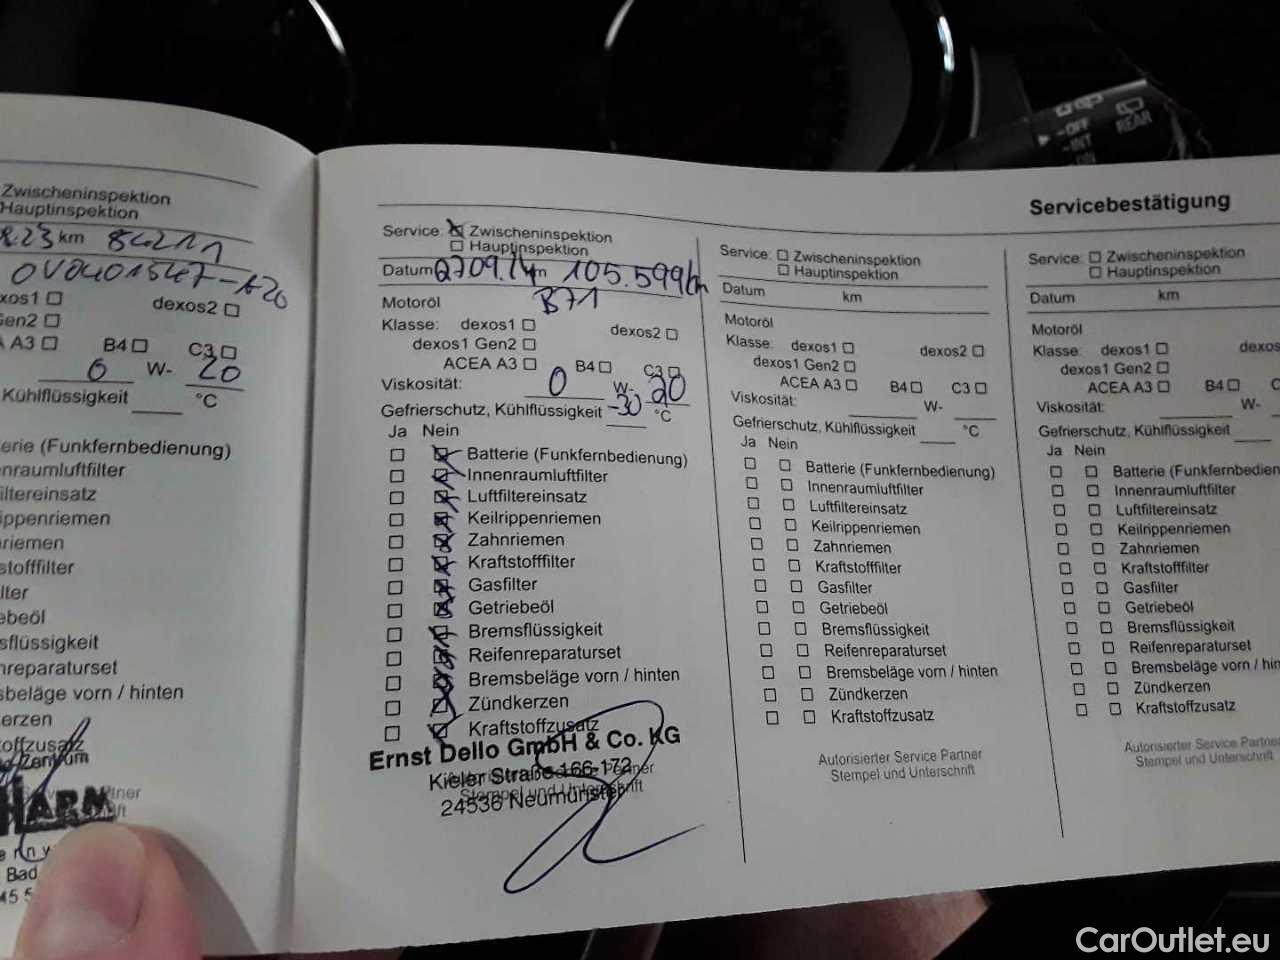 OFF
INT
REAR
Servicebestätigung
Zwischeninspektion
Hauptinspektion
8.23 km 84211
OV0401547-A20
dexos2
Gen2
A3 B4 C3
0 W- 20
Kühlflüssigkeit °C
(Funkfernbedienung)
Service: Zwischeninspektion
Hauptinspektion
Datum 2709.24 km 105.599km
Motoröl B71
Klasse: dexos1 dexos2
dexos1 Gen2
ACEA A3 B4 C3
Viskosität: 0 W- 20
Gefrierschutz, Kühlflüssigkeit -30 °C
Ja Nein
Batterie (Funkfernbedienung)
Innenraumluftfilter
Luftfiltereinsatz
Keilrippenriemen
Zahnriemen
Kraftstofffilter
Gasfilter
Getriebeöl
Bremsflüssigkeit
Reifenreparaturset
Bremsbeläge vorn / hinten
Zündkerzen
Kraftstoffzusatz
Ernst Dello GmbH & Co. KG
Kieler Straße 166-172
24536 Neumünster
Stempel und Unterschrift
Service: Zwischeninspektion
Hauptinspektion
Datum km
Motoröl
Klasse: dexos1 dexos2
dexos1 Gen2
ACEA A3 B4 C3
Viskosität: W-
Gefrierschutz, Kühlflüssigkeit °C
Ja Nein
Batterie (Funkfernbedienung)
Innenraumluftfilter
Luftfiltereinsatz
Keilrippenriemen
Zahnriemen
Kraftstofffilter
Gasfilter
Getriebeöl
Bremsflüssigkeit
Reifenreparaturset
Bremsbeläge vorn / hinten
Zündkerzen
Kraftstoffzusatz
Autorisierter Service Partner
Stempel und Unterschrift
Service: Zwischeninspektion
Hauptinspektion
Datum km
Motoröl
Klasse: dexos1 dexos
dexos1 Gen2
ACEA A3 B4
Viskosität: W-
Gefrierschutz, Kühlflüssigkeit
Ja Nein
Batterie (Funkfernbedien
Innenraumluftfilter
Luftfiltereinsatz
Keilrippenriemen
Zahnriemen
Kraftstofffilter
Gasfilter
Getriebeöl
Bremsflüssigkeit
Reifenreparaturset
Bremsbeläge vorn / hin
Zündkerzen
Kraftstoffzusatz
Autorisierter Service Partne
Stempel und Unterschrift
CarOutlet.eu